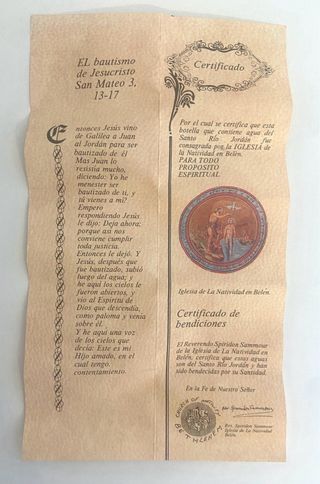 EL bautismo
de Jesucristo
San Mateo 3,
13-17
Entonces Jesús vino
de Galilea a Juan
al Jordán para ser
bautizado de él
Mas Juan lo
resistia mucho,
diciendo: Yo he
menester ser
bautizado de ti, y
tú vienes a mi?
Empero
respondiendo Jesús
le dijo: Deja ahora;
porque asi nos
conviene cumplir
toda justicia.
Entonces le dejó. Y
Jesús, después que
fue bautizado, subió
luego del agua; y
he aqui los cielos le
fueron abiertos, y
vio al Espiritu de
Dios que descendia,
como paloma y venia
sobre él.
Y he aqui una voz
de los cielos que
decia: Este es mi
Hijo amado, en el
cual tengo
contentamiento.
Certificado
Por el cual se certifica que esta
botella que contiene agua del
Santo Río Jordán fue
consagrada por la IGLESIA de
la Natividad en Belén.
PARA TODO
PROPOSITO
ESPIRITUAL
Iglesia de La Natividad en Belén.
Certificado de
bendiciones
El Reverendo Spiridon Sammour
de la Iglesia de La Natividad en
Belén, certifica que estas aguas
son del Santo Río Jordán y han
sido bendecidas por su Santidad.
En la Fe de Nuestro Señor
CHURCH OF
BETHLEHEM
Rev. Spiridon Sammour
Iglesia de La Natividad
Belén.